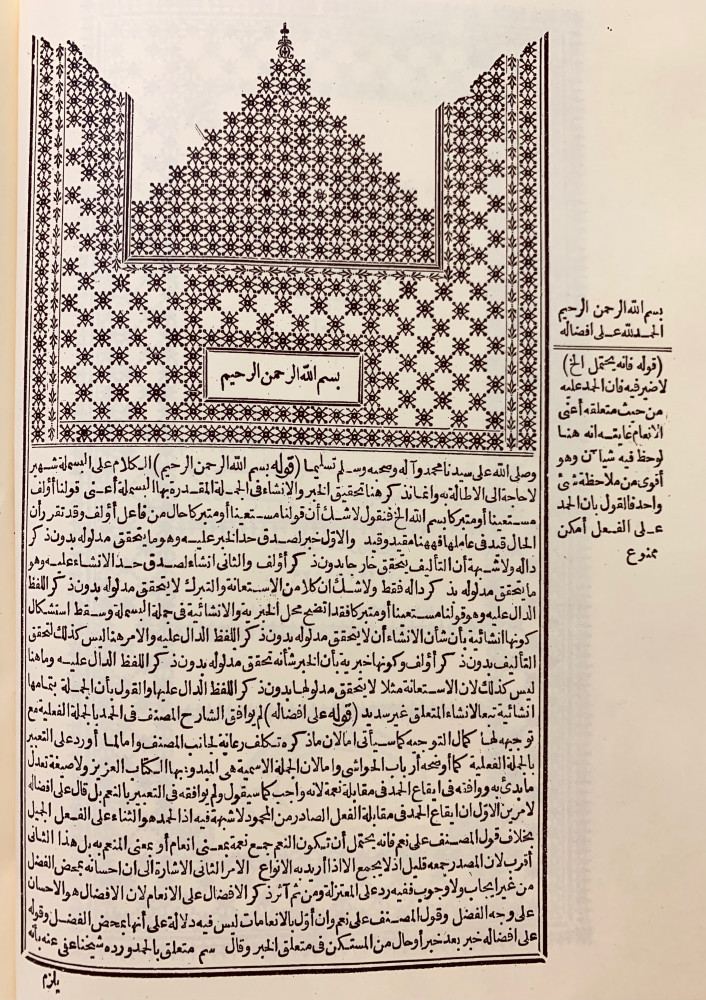 بسم الله الرحمن الرحيم
وصلى الله على سيدنا محمد وآله وصحبه وسلم تسليما (قوله بسم الله الرحمن الرحيم) الكلام على البسملة شهير
لا حاجة الى الاطالة به وانما نذكر هنا تحقيق الخبر والانشاء فى الجملة المقدر بها البسملة أعنى قولنا أؤلف
مستعينا أو متبركا بسم الله الخ فنقول لاشك أن قولنا مستعينا أو متبركا حال من فاعل أؤلف وقد تقرر أن
الحال قيد فى عاملها فههنا مقيد وقيد والاول خبر لصدق حد الخبر عليه وهو ما يتحقق مدلوله بدون ذكر
داله ولا شبهة أن التأليف يتحقق خارجا بدون ذكر أؤلف والثانى انشاء لصدق حد الانشاء عليه وهو
ما يتحقق مدلوله بذكر داله فقط ولاشك ان كلا من الاستعانة والتبرك لا يتحقق مدلوله بدون ذكر اللفظ
الدال عليه وهو قولنا مستعينا أو متبركا فقد اتضح محل الخبرية والانشائية فى جملة البسملة وسقط استشكال
كونها انشائية بأن شأن الانشاء أن لا يتحقق مدلوله بدون ذكر اللفظ الدال عليه والامر هنا ليس كذلك لتحقق
التأليف بدون ذكر أؤلف وكونها خبرية بأن الخبر شأنه تحقق مدلوله بدون ذكر اللفظ الدال عليه وما هنا
ليس كذلك لان الاستعانة مثلا لا يتحقق مدلولها بدون ذكر اللفظ الدال عليها والقول بأن الجملة بتمامها
انشائية تبعا لانشاء المتعلق غير سديد (قوله على افضاله) لم يوافق الشارح المصنف فى الحمد بالجملة الفعلية مع
توجيهه لها كمال التوجيه كما سيأتى امالان ماذكره تكلف رعاية لجانب المصنف وامالما أورد على التعبير
بالجملة الفعلية كما أوضحه أرباب الحواشى وامالان الجملة الاسمية هى المبدو بها الكتاب العزيز ولا صيغة تعدل
ما بدئ به ووافقه فى ايقاع الحمد فى مقابلة نعمة لانه واجب كما سيقول ولم يوافقه فى التعبير بالنعم بل قال على افضاله
لامرين الاول ان ايقاع الحمد فى مقابلة الفعل الصادر من المحمود لا شبهة فيه اذ الحمد هو الثناء على الفعل الجميل
بخلاف قول المصنف على نعم فانه يحتمل أن تكون النعم جمع نعمة بمعنى انعام أو بمعنى المنعم به بل هذا الثانى
أقرب لان المصدر جمعه قليل اذ لا يجمع الا اذا أريد به الانواع الامر الثانى الاشارة الى ان احسانه بمحض الفضل
من غير ايجاب ولا وجوب ففيه رد على المعتزلة ومن ثم آثر ذكر الافضال على الانعام لان الافضال هو الاحسان
على وجه الفضل وقول المصنف على نعم وان أول بالانعامات ليس فيه دلالة على أنها بمحض الفضل وقوله
على افضاله خبر بعد خبر أو حال من المستكن فى متعلق الخبر وقال سم متعلق بالحمد ورده شيخنا عنى عنه بأنه
يلزم
بسم الله الرحمن الرحيم
الحمد لله على افضاله
(قوله فانه يحتمل الخ)
لا ضير فيه فان الحمد عليه
من حيث متعلقه أعنى
الانعام غايته انه هنا
لوحظ فيه شيآن وهو
أقوى من ملاحظة شئ
واحد فالقول بان الحمد
على الفعل أمكن
ممنوع